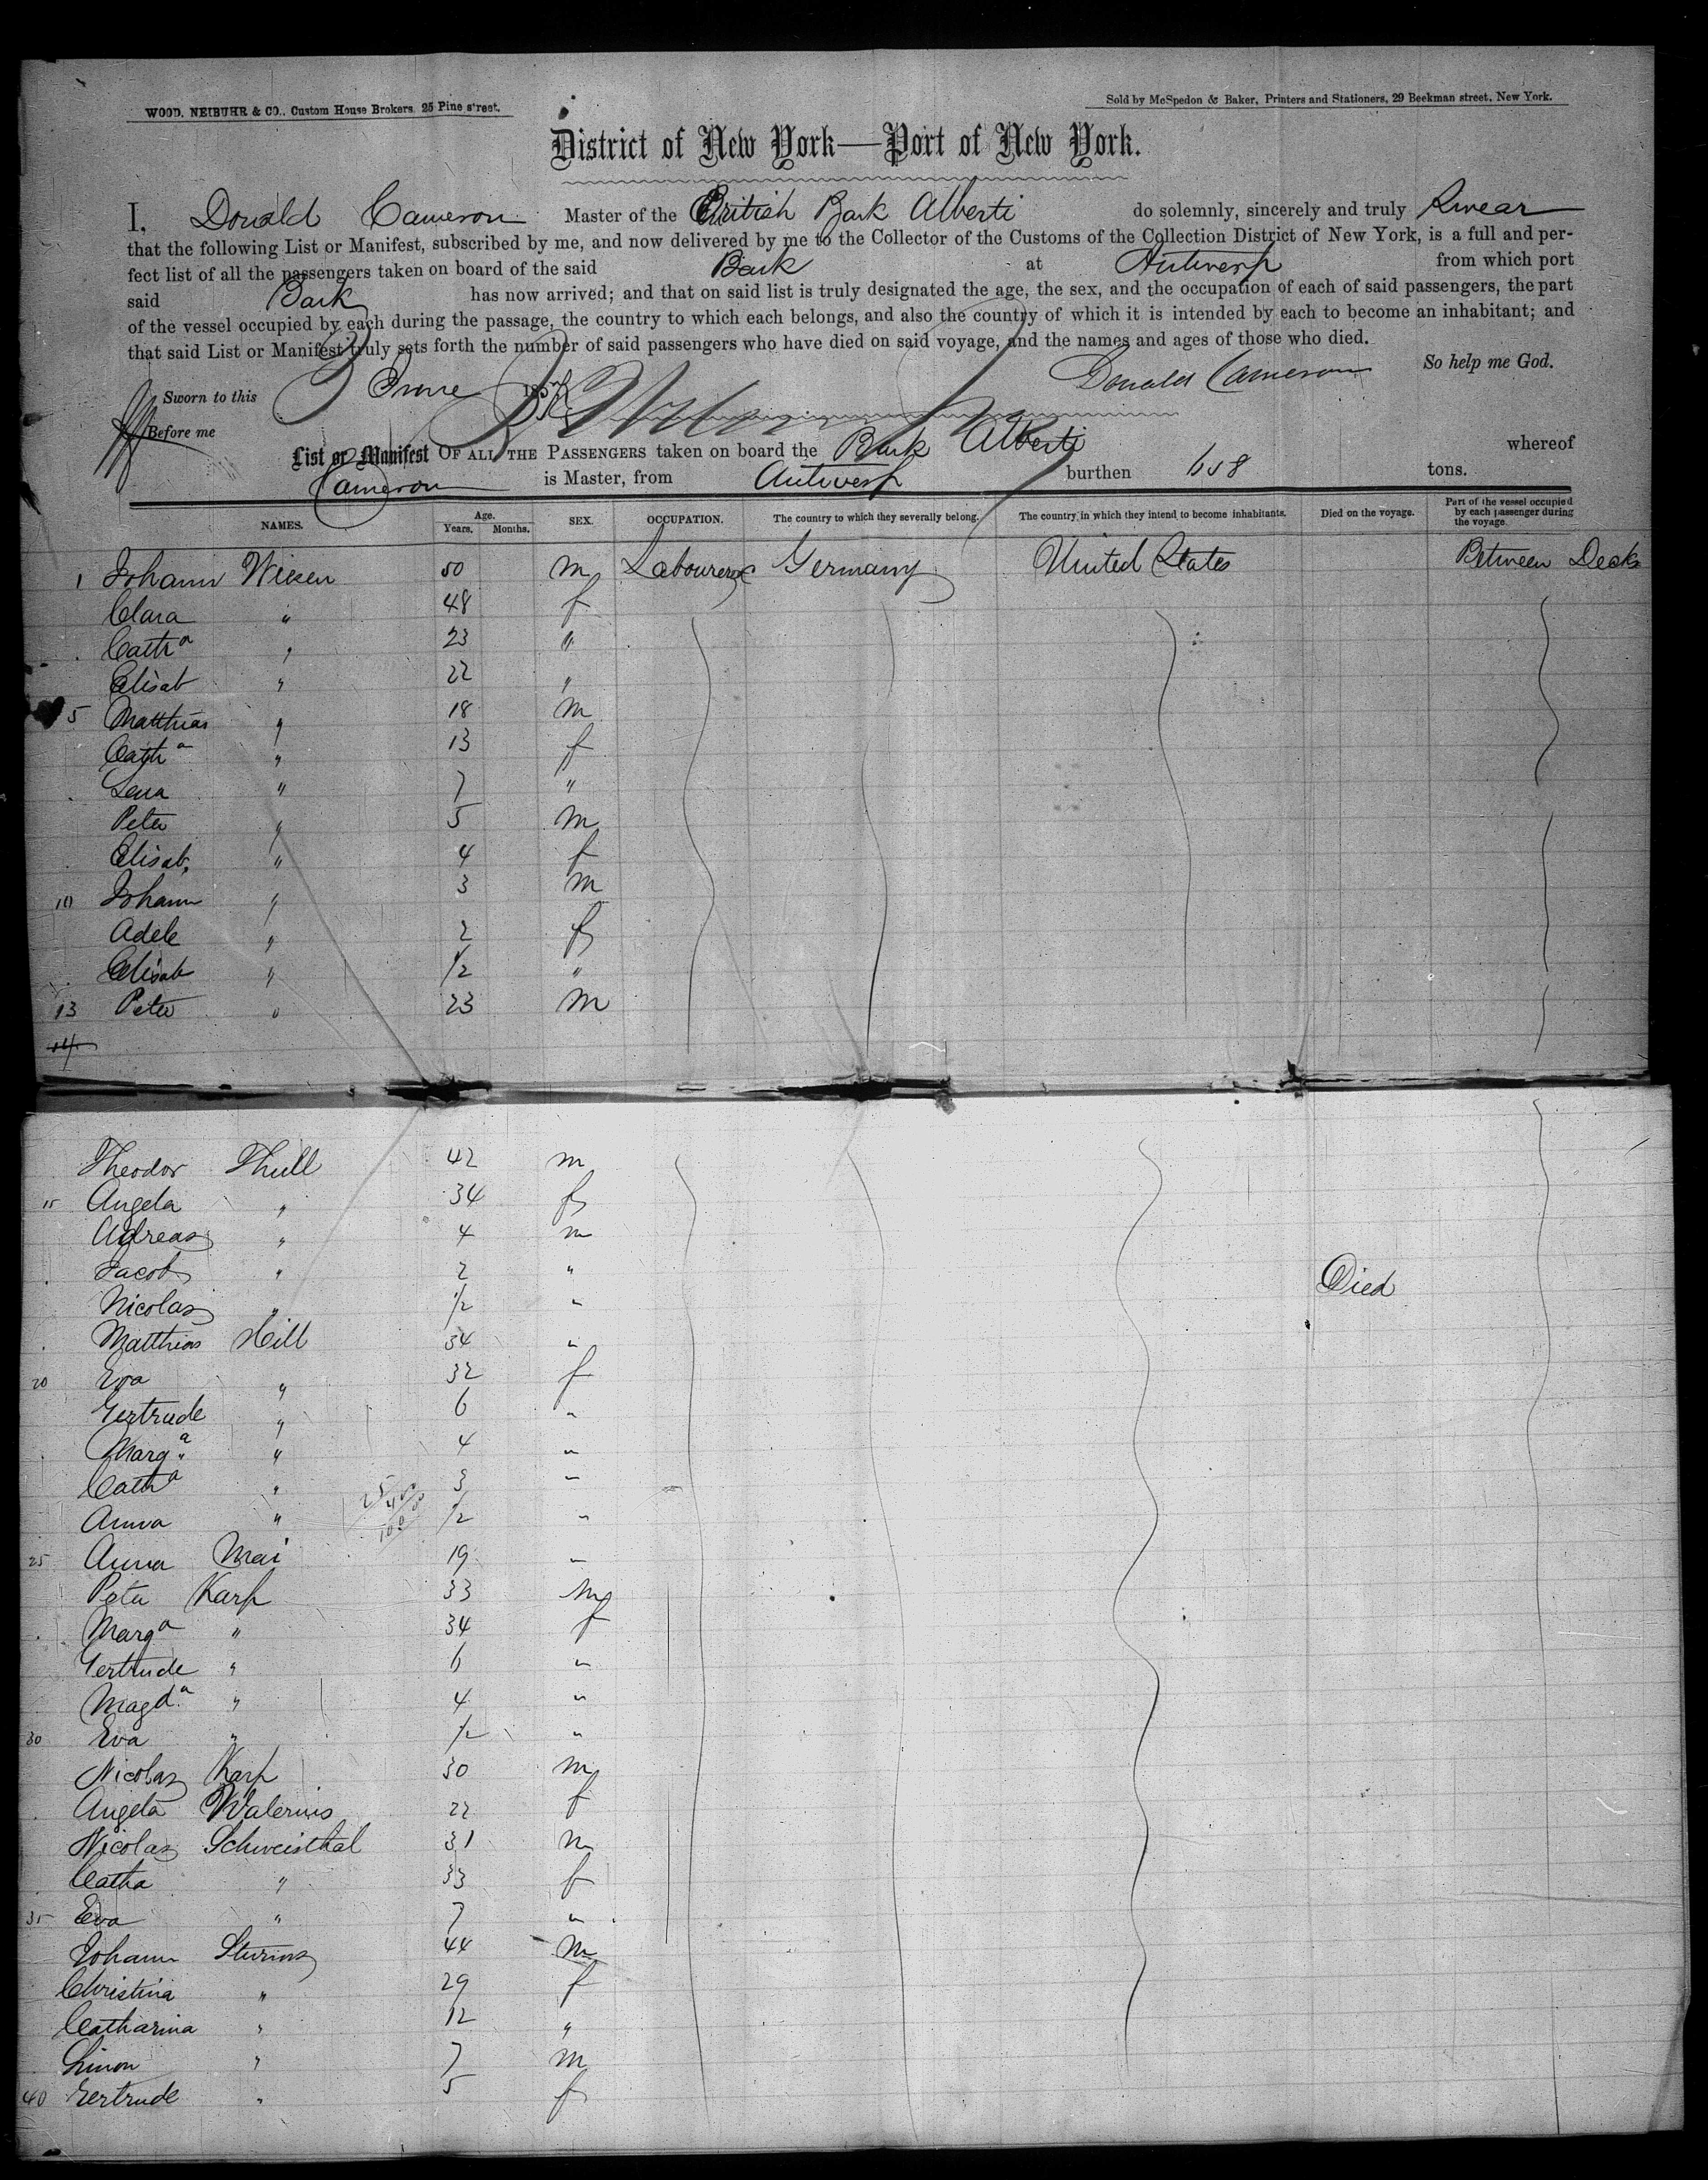 WOOD, NEIBUHR & CO., Custom House Brokers, 25 Pine street.
Sold by McSpedon & Baker, Printers and Stationers, 29 Beekman street, New York.
District of New York—Port of New York.
I, Donald Cameron Master of the British Bark Alberti do solemnly, sincerely and truly Swear
that the following List or Manifest, subscribed by me, and now delivered by me to the Collector of the Customs of the Collection District of New York, is a full and per-
fect list of all the passengers taken on board of the said Bark at Antwerp from which port
said Bark has now arrived; and that on said list is truly designated the age, the sex, and the occupation of each of said passengers, the part
of the vessel occupied by each during the passage, the country to which each belongs, and also the country of which it is intended by each to become an inhabitant; and
that said List or Manifest truly sets forth the number of said passengers who have died on said voyage, and the names and ages of those who died.
So help me God.
Sworn to this 3 June 185 Donald Cameron
Before me
List or Manifest OF ALL THE PASSENGERS taken on board the Bark Alberti whereof
Cameron is Master, from Antwerp burthen 658 tons.
NAMES. Age. Years. Months. SEX. OCCUPATION. The country to which they severally belong. The country in which they intend to become inhabitants. Died on the voyage. Part of the vessel occupied by each passenger during the voyage.
1 Johann Wiesen 50 m Labourers Germany United States Between Decks
Clara " 48 f
Cath a " 23 "
Elisab " 22 "
5 Matthias " 18 m
Cath a " 13 f
Lena " 7 "
Peter " 5 m
Elisab. " 4 f
10 Johann " 3 m
Adele " 2 f
Elisab " 1/2 "
13 Peter " 23 m
14
Theodor Thull 42 m
15 Angela " 34 f
Adreas " 4 m
Jacob " 2 "
Nicolas " 1/2 " Died
Matthias Hill 34 "
20 Eva " 32 f
Gertrude " 6 "
Marg a " 4 "
Cath a " 3 "
Anna " 1/2 "
25 Anna Mai 19 "
Peter Karp 33 m
Marg a " 34 f
Gertrude " 6 "
Magd a " 4 "
30 Eva " 1/2 "
Nicolas Karp 30 m
Angela Walerius 22 f
Nicolas Schweisthal 31 m
Catha " 33 f
35 Eva " 7 "
Johann Sturms 44 m
Christina " 29 f
Catharina " 12 "
Simon " 7 m
40 Gertrude " 5 f